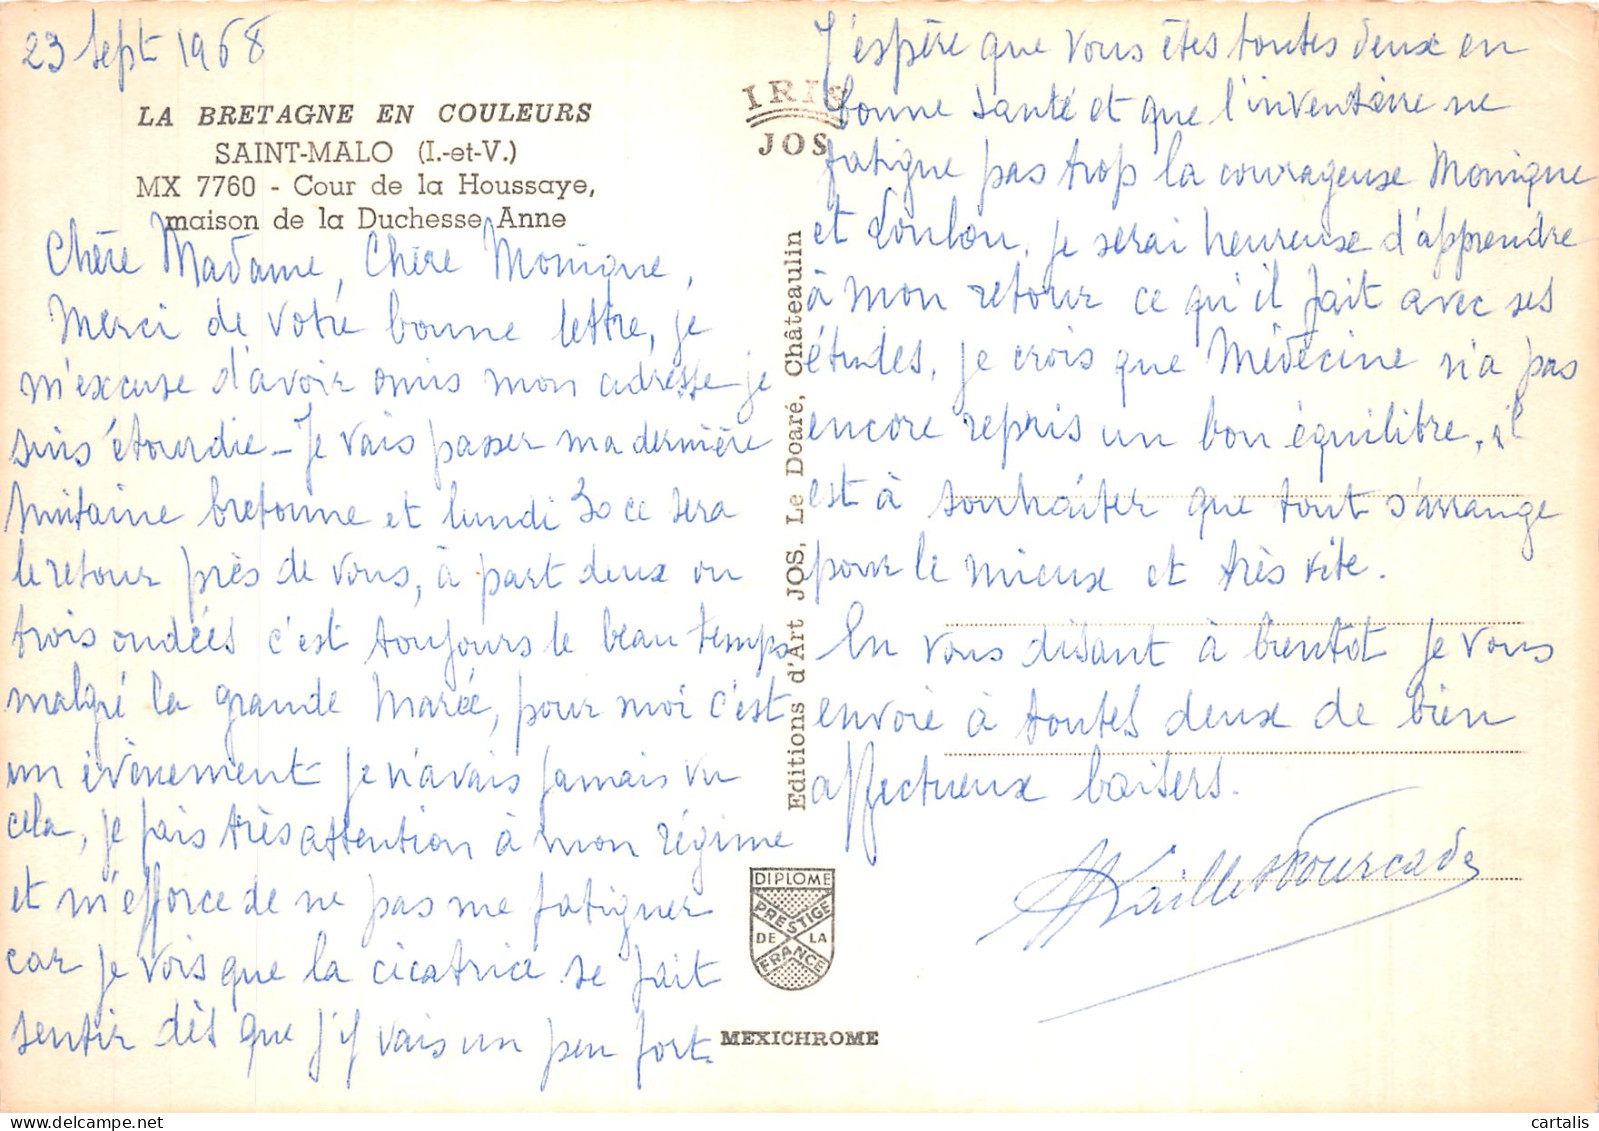 23 Sept 1968
LA BRETAGNE EN COULEURS
SAINT-MALO (I.-et-V.)
MX 7760 - Cour de la Houssaye,
maison de la Duchesse Anne
Chère Madame, Chère Monique,
Merci de votre bonne lettre, je
m'excuse d'avoir omis mon adresse je
suis étourdie - Je vais passer ma dernière
huitaine bretonne et lundi 30 ce sera
le retour près de vous, à part deux ou
trois ondées c'est toujours le beau temps
malgré la grande Marée, pour moi c'est
un évènement je n'avais jamais vu
cela, je fais très attention à mon régime
et m'efforce de ne pas me fatiguer
car je vois que la cicatrice se fait
sentir dès que j'y vais un peu fort.
IRIS
JOS
Editions d'Art JOS, Le Doaré, Châteaulin
DIPLOME
PRESTIGE
DE LA
FRANCE
MEXICHROME
J'espère que vous êtes toutes deux en
bonne santé et que l'inventaire ne
fatigue pas trop la courageuse Monique
et Loulou, je serai heureuse d'apprendre
à mon retour ce qu'il fait avec ses
études, je crois que Médecine n'a pas
encore repris un bon équilibre, il
est à souhaiter que tout s'arrange
pour le mieux et très vite.
En vous disant à bientot je vous
envoie à toutes deux de bien
affectueux baisers.
cartalis